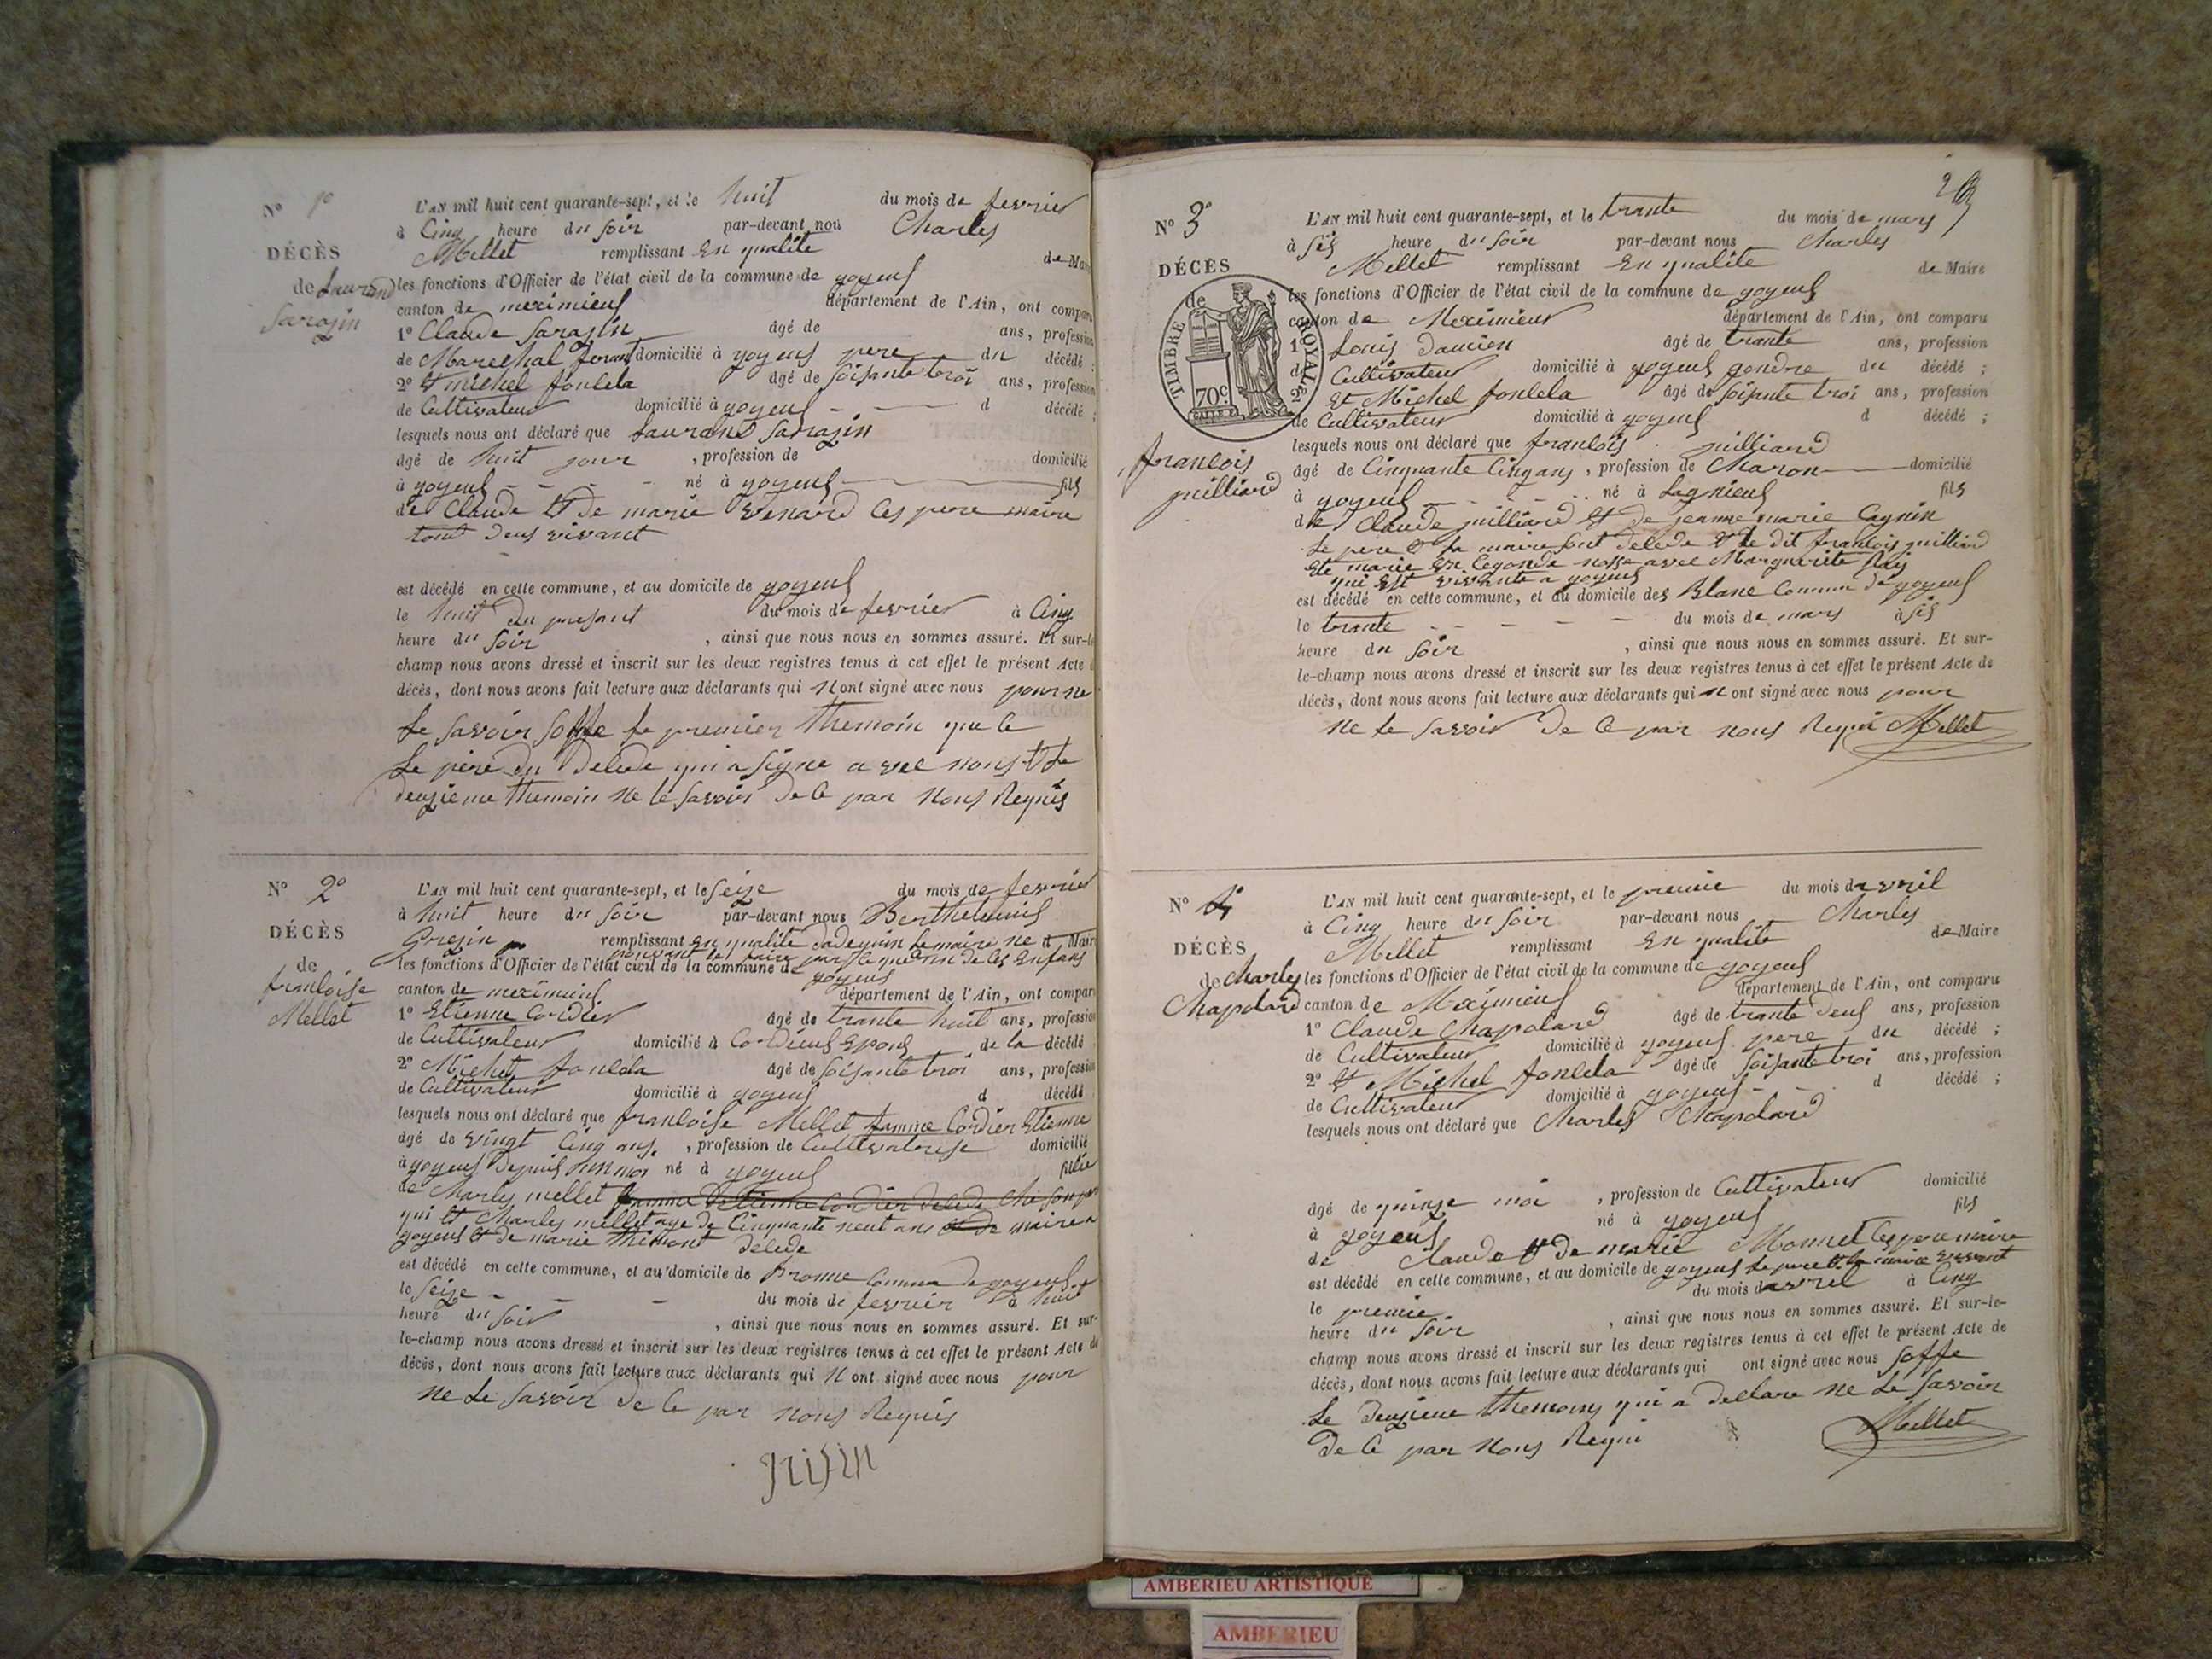 N° 1°
L'AN mil huit cent quarante-sept, et le huit du mois de fevrier
à Cinq heure du soir par-devant nous Charles
DÉCÈS
Mellet remplissant En qualite de Maire
de Laurand les fonctions d'Officier de l'état civil de la commune de joyeus
Sarazin
canton de meximieus département de l'Ain, ont comparu
1° Claude Sarazin âgé de ans, profession
de Marechal ferant domicilié à joyeus pere du décédé ;
2° et michel fonlela âgé de soisante troi ans, profession
de Cultivateur domicilié à joyeus d décédé ;
lesquels nous ont déclaré que Laurand Sarrazin
âgé de huit jour , profession de domicilié
à joyeus né à joyeus fils
de Claude et de marie Venard Ces pere maire
tout deus vivant
est décédé en cette commune, et au domicile de joyeus
le huit du presant du mois de fevrier à Cinq
heure du soir , ainsi que nous nous en sommes assuré. Et sur-le
champ nous avons dressé et inscrit sur les deux registres tenus à cet effet le présent Acte d
décès, dont nous avons fait lecture aux déclarants qui n ont signé avec nous pour ne
le savoir soffe le premier themoin que le
le père du decede qui a signe avec nous et le
deuzieme themoin ne le savoir de ce par nous Requis
N° 2°
L'AN mil huit cent quarante-sept, et le seize du mois de fevrier
à huit heure du soir par-devant nous Berthelemis
DÉCÈS
Grezin remplissant en qualite dadejoin le maire ne d Maire
pouvant le faire
de les fonctions d'Officier de l'état civil de la commune de joyeus
franloise
Mellet
canton de meximieus département de l'Ain, ont comparu
1° Etienne Cordier âgé de trante huit ans, profession
de Cultivateur domicilié à Cordieus Epous de la décédé
2° Michel fonlela âgé de soisante troi ans, profession
de Cultivateur domicilié à joyeus d décédé
lesquels nous ont déclaré que franloise Mellet famme Cordier Etienne
âgé de vingt Cinq ans , profession de Cultivatrise domicilié
à joyeus Depuis né à joyeus fillie
de Charles mellet
qui et Charles mellet age de Cinquante neuf ans de maire a
joyeus et de marie decede
est décédé en cette commune, et au domicile de Bronne Commune de joyeus
le seize du mois de fevrier à huit
heure du soir , ainsi que nous nous en sommes assuré. Et sur-
le-champ nous avons dressé et inscrit sur les deux registres tenus à cet effet le présent Acte de
décès, dont nous avons fait lecture aux déclarants qui n ont signé avec nous pour
ne le savoir de ce par nous Requis
N° 3°
L'AN mil huit cent quarante-sept, et le trante du mois de mars
à sis heure du soir par-devant nous Charles
DÉCÈS
Mellet remplissant En qualite de Maire
de les fonctions d'Officier de l'état civil de la commune de joyeus
TIMBRE ROYAL
70c
canton de Meximieus département de l'Ain, ont comparu
1° Louis Damien âgé de trante ans, profession
de Cultivateur domicilié à joyeus gendre du décédé ;
2° Et Michel fonlela âgé de soisante troi ans, profession
de Cultivateur domicilié à joyeus d décédé ;
lesquels nous ont déclaré que franlois juilliard
franlois
juilliard
âgé de Cinquante Cinq ans , profession de Charon domicilié
à joyeus né à Lagnieus fils
de Claude juilliard et de jeanne marie Cagnin
le pere et la maire sont decede et le dit franlois juilliard
ete marie en Cegonde nosse avec Marguerite Rey
qui est vivante a joyeus
est décédé en cette commune, et au domicile des Blanc Commune de joyeus
le trante du mois de mars à sis
heure du soir , ainsi que nous nous en sommes assuré. Et sur-
le-champ nous avons dressé et inscrit sur les deux registres tenus à cet effet le présent Acte de
décès, dont nous avons fait lecture aux déclarants qui n ont signé avec nous pour
ne le savoir de ce par nous Requi Mellet
N° 4
L'AN mil huit cent quarante-sept, et le premie du mois d avril
à Cinq heure du soir par-devant nous Charles
DÉCÈS
Mellet remplissant En qualite de Maire
de Charles les fonctions d'Officier de l'état civil de la commune de joyeus
Chapolard canton de Meximieus département de l'Ain, ont comparu
1° Claude Chapolard âgé de trante deus ans, profession
de Cultivateur domicilié à joyeus pere du décédé ;
2° et Michel fonlela âgé de soisante troi ans, profession
de Cultivateur domicilié à joyeus d décédé ;
lesquels nous ont déclaré que Charles Chapolard
âgé de quinze moi , profession de Cultivateur domicilié
à joyeus né à joyeus fils
de Claude et de marie Monnet Ces pere maire
est décédé en cette commune, et au domicile de joyeus le pere et la maire vivant
le premie du mois d avril à Cinq
heure du soir , ainsi que nous nous en sommes assuré. Et sur-le-
champ nous avons dressé et inscrit sur les deux registres tenus à cet effet le présent Acte de
décès, dont nous avons fait lecture aux déclarants qui ont signé avec nous soffe
le deuzieme themoins qui a declare ne le savoir
de ce par nous Requi Mellet
AMBERIEU ARTISTIQUE
AMBERIEU